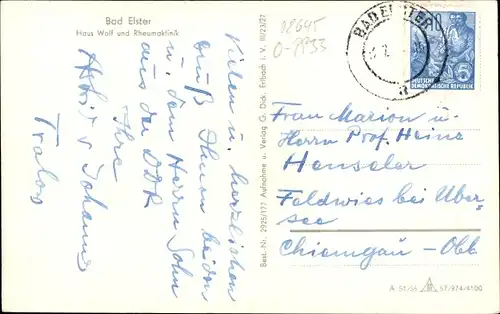 Bad Elster
Haus Wolf und Rheumaklinik
Vielen u. herzlichen
Gruß Ihnen beiden
u. dem Herrn Sohn
aus der DDR
Ihre
u. Johannes
Best.-Nr. 2925/177 Aufnahme u. Verlag G. Dick, Erlbach i. V. III/23/27
BAD ELSTER
a
DEUTSCHE
DEMOKRATISCHE REPUBLIK
5
Frau Marion u.
Herrn Prof. Heinz
Henseler
Feldwies bei Über-
see
Chiemgau - Obb
A 51/56 57/974/4100